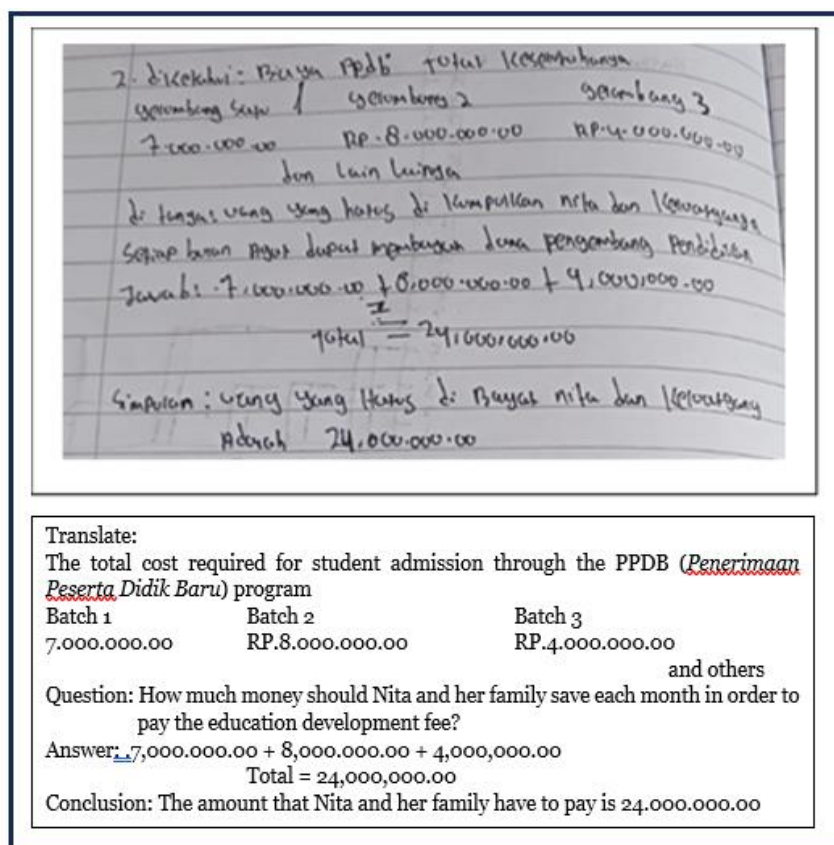 2. diketahui : Biaya PPdb total keseluruhanya
gelombang satu 1 gelombang 2 gelombang 3
7.000.000.00 RP.8.000.000.00 RP.4.000.000.00
dan lain lainya
di tanya: uang yang harus di kumpulkan nita dan keluarganya
setiap bulan Agar dapat membayar dana pengembang pendidikan
Jawab: 7.000.000.00 + 8,000.000.00 + 4,000,000.00
total = 24,000,000.00
Simpulan : uang yang Harus di Bayar nita dan keluargany
Adalah 24.000.000.00
Translate:
The total cost required for student admission through the PPDB (Penerimaan
Peserta Didik Baru) program
Batch 1 Batch 2 Batch 3
7.000.000.00 RP.8.000.000.00 RP.4.000.000.00
and others
Question: How much money should Nita and her family save each month in order to
pay the education development fee?
Answer: .7,000.000.00 + 8,000.000.00 + 4,000,000.00
Total = 24,000,000.00
Conclusion: The amount that Nita and her family have to pay is 24.000.000.00